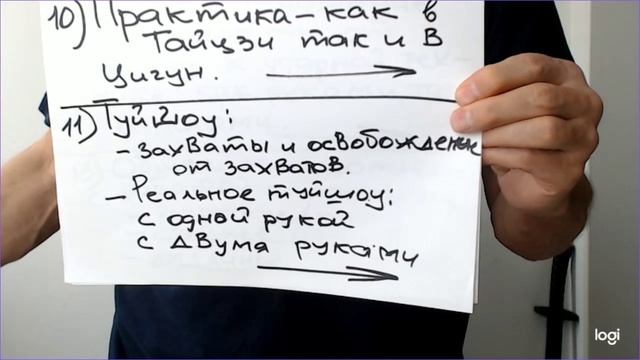 10) Практика – как в
Тайцзи так и в
Цигун.
11) Туйшоу:
- захваты и освобождение
от захватов.
- Реальное туйшоу:
с одной рукой
с двума руками
logi